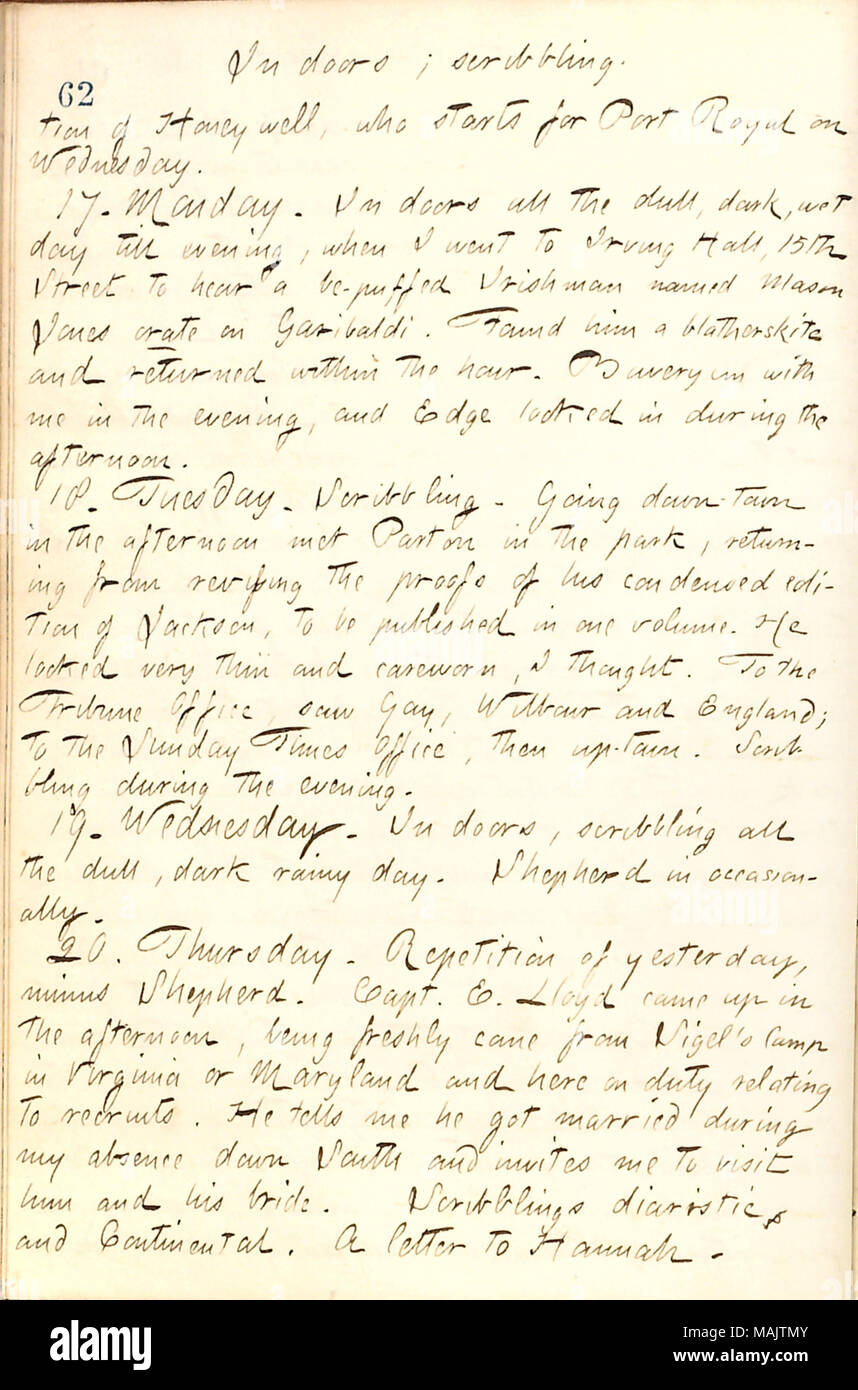 In doors ; scribbling.
62
tion of Honeywell, who starts for Port Royal on
Wednesday.
17. Monday. In doors all the dull, dark, wet
day till evening, when I went to Irving Hall, 15th
Street to hear a be-puffed Irishman named Mason
Jones orate on Garibaldi. Found him a blatherskite
and returned within the hour. Boweryem with
me in the evening, and Edge looked in during the
afternoon.
18. Tuesday. Scribbling. Going down-town
in the afternoon met Parton in the park, return-
ing from revising the proofs of his condensed edi-
tion of Jackson, to be published in one volume. He
looked very thin and careworn, I thought. To the
Tribune Office, saw Gay, Wilbour and England;
to the Sunday Times Office, then up-town. Scrib-
bling during the evening.
19. Wednesday. In doors, scribbling all
the dull, dark rainy day. Shepherd in occasion-
ally.
20. Thursday. Repetition of yesterday,
minus Shepherd. Capt. E. Lloyd came up in
the afternoon, being freshly come from Sigel's Camp
in Virginia or Maryland and here on duty relating
to recruits. He tells me he got married during
my absence down South and invites me to visit
him and his bride. Scribblings diaristic,
and Continental. A letter to Hannah.
alamy
Image ID: MAJTMY
www.alamy.com